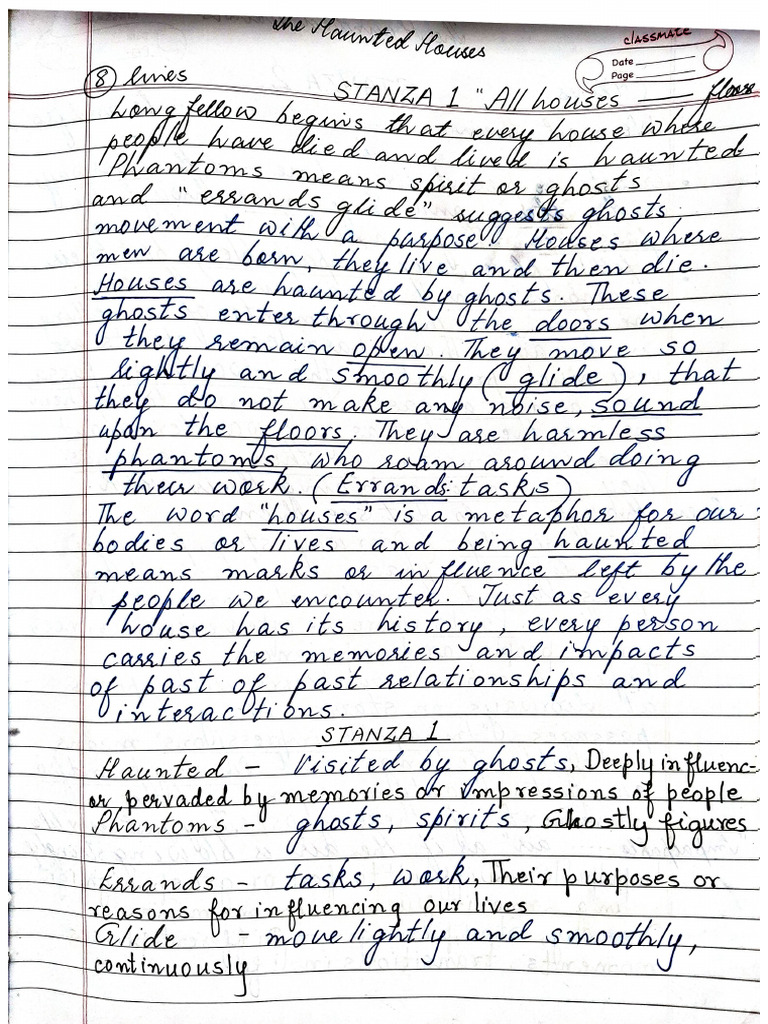 The Haunted Houses
classmate
Date
Page
8 lines
STANZA 1 "All houses —— floors
Longfellow begins that every house where
people have died and lived is haunted
Phantoms means spirit or ghosts
and "errands glide" suggests ghosts
movement with a purpose Houses where
men are born, they live and then die.
Houses are haunted by ghosts. These
ghosts enter through the doors when
they remain open. They move so
lightly and smoothly (glide), that
they do not make any noise, sound
upon the floors. They are harmless
phantoms, who roam around doing
their work. (Errands: tasks)
The word "houses" is a metaphor for our
bodies or lives and being haunted
means marks or influence left by the
people we encounter. Just as every
house has its history, every person
carries the memories and impacts
of past of past relationships and
interactions.
STANZA 1
Haunted - Visited by ghosts, Deeply influenc-
or pervaded by memories or impressions of people
Phantoms - ghosts, spirits, Ghostly figures
Errands - tasks, work, Their purposes or
reasons for influencing our lives
Glide - move lightly and smoothly,
continuously